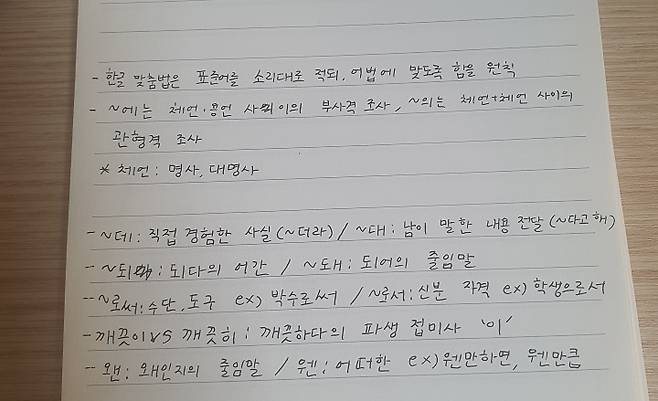 - 한글 맞춤법은 표준어를 소리대로 적되, 어법에 맞도록 함을 원칙
- ~에는 체언·용언 사이의 부사격 조사, ~의는 체언+체언 사이의
관형격 조사
* 체언: 명사, 대명사
- ~데: 직접 경험한 사실(~더라) / ~대: 남이 말한 내용 전달(~다고해)
- ~되: 되다의 어간 / ~돼: 되어의 줄임말
- ~로써: 수단, 도구 ex) 박수로써 / ~로서: 신분 자격 ex) 학생으로서
- 깨끗이 vs 깨끗히: 깨끗하다의 파생 접미사 '이'
- 왠: 왜인지의 줄임말 / 웬: 어떠한 ex) 웬만하면, 웬만큼